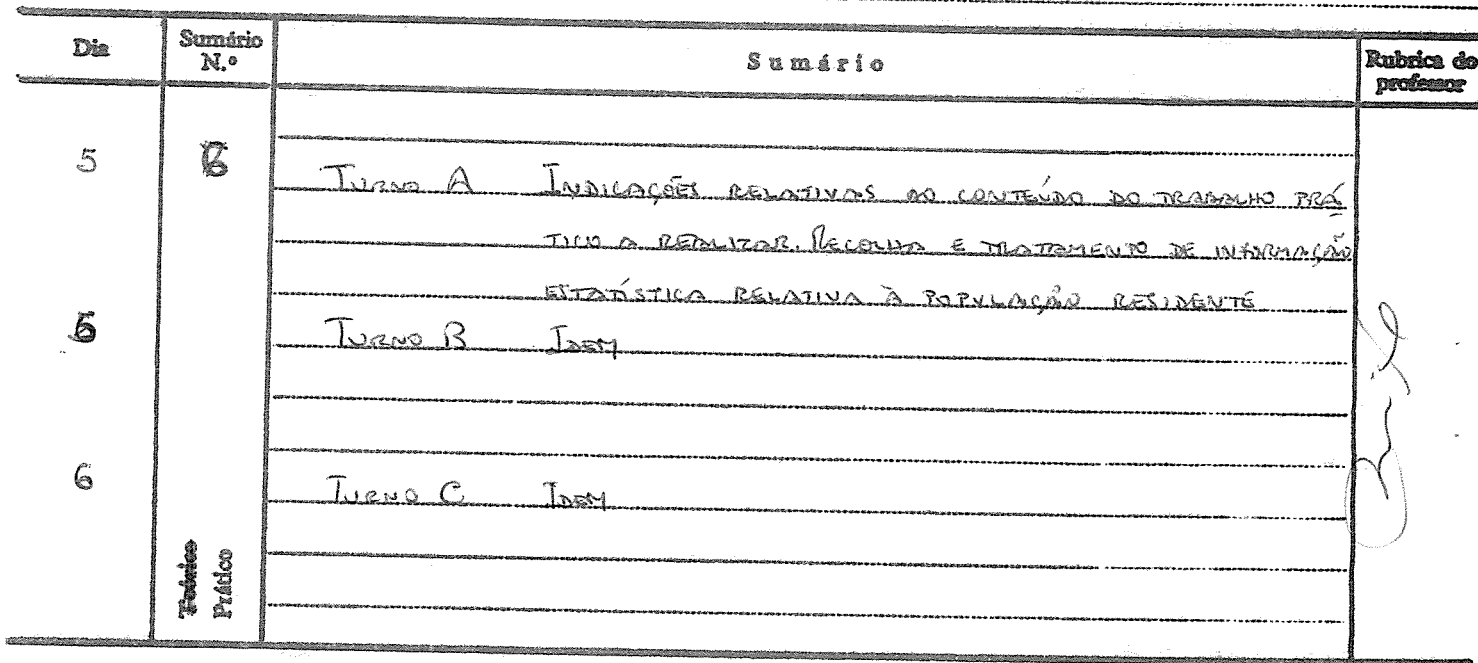 Dia Sumário N.º Sumário Rubrica do professor
5 6 TURNO A INDICAÇÕES RELATIVAS AO CONTEÚDO DO TRABALHO PRÁ
TICO A REALIZAR. RECOLHA E TRATAMENTO DE INFORMAÇÃO
ESTATÍSTICA RELATIVA À POPULAÇÃO RESIDENTE
5 TURNO B IDEM
6 TURNO C IDEM
Teórico
Prático